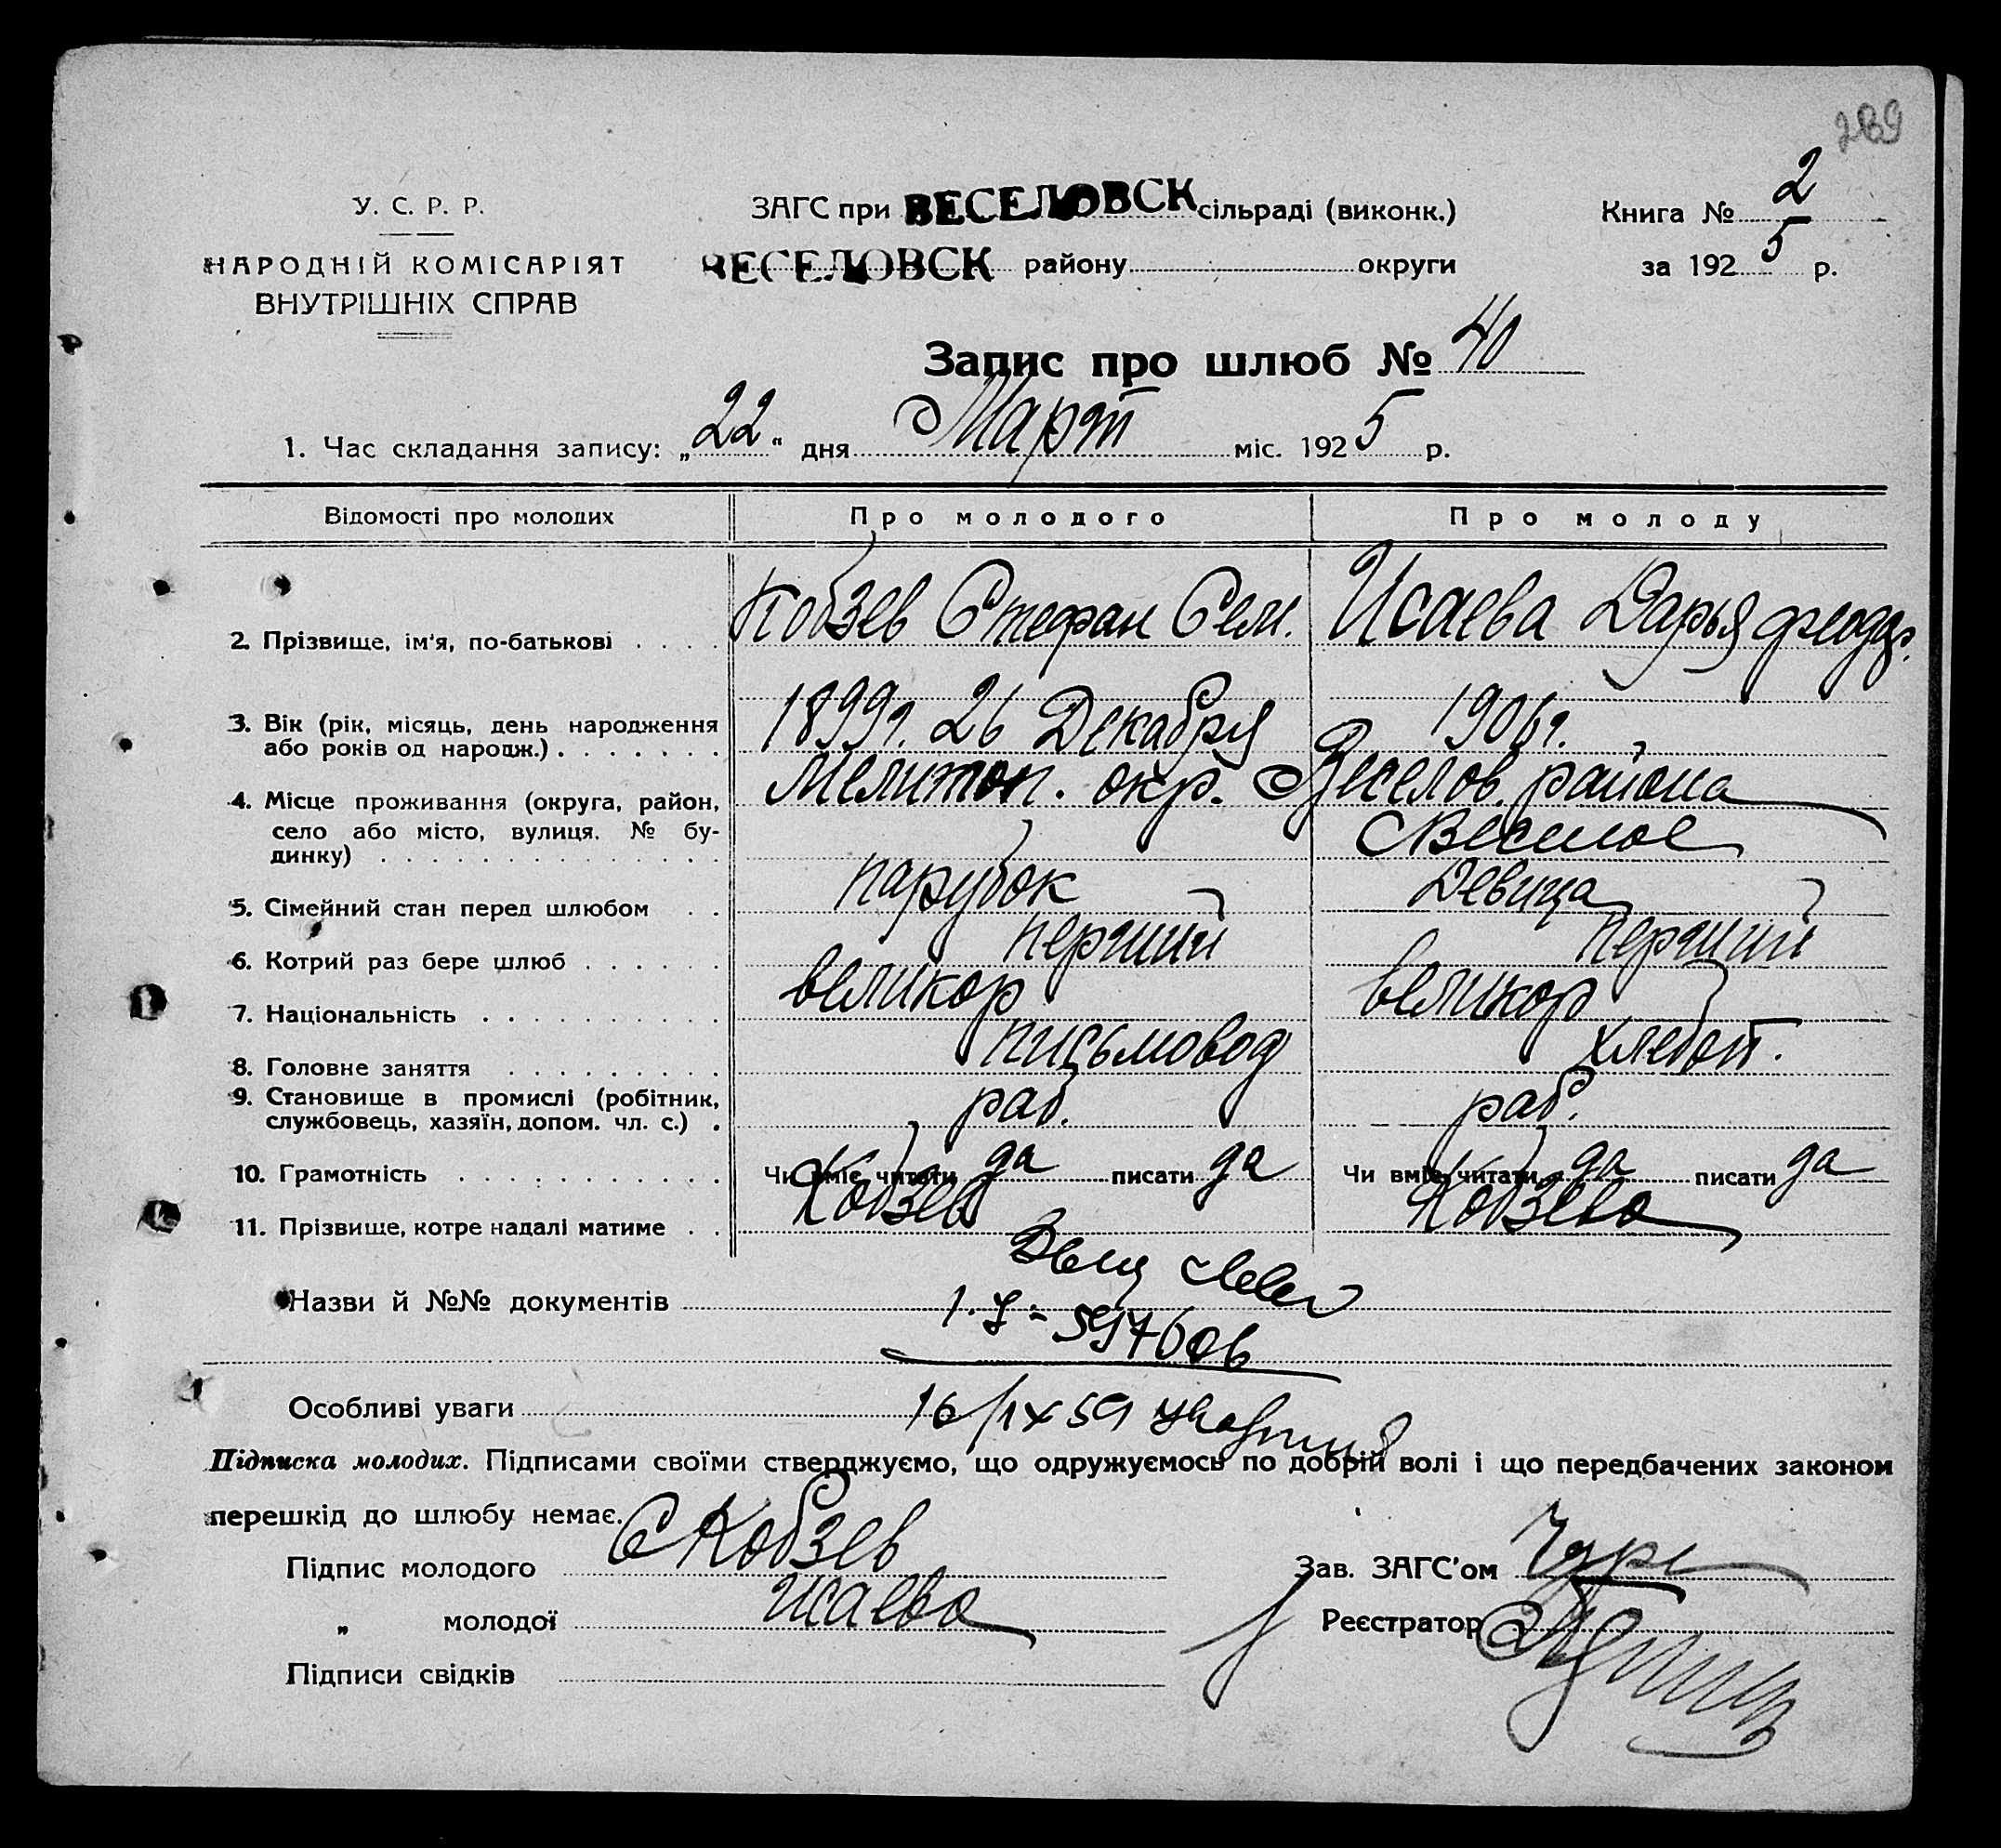 289
У. С. Р. Р.
НАРОДНІЙ КОМІСАРІЯТ
ВНУТРІШНІХ СПРАВ
ЗАГС при ВЕСЕЛОВСК сільраді (виконк.)
ВЕСЕЛОВСК району округи
Книга № 2
за 1925 р.
Запис про шлюб № 40
1. Час складання запису: „22“ дня Март міс. 1925 р.
Відомості про молодих Про молодого Про молоду
2. Прізвище, ім'я, по-батькові . . . . Кобзев Стефан Сем. Исаева Дарья феодор.
3. Вік (рік, місяць, день народження
або років од народж.) . . . . . . . 1899г. 26 Декабря 1906г.
4. Місце проживання (округа, район, Мелитоп. окр. Веселов. района
село або місто, вулиця. № бу-
динку) . . . . . . . . . . . . . . с Веселое
5. Сімейний стан перед шлюбом . . парубок Девица
6. Котрий раз бере шлюб . . . . . . перший перший
7. Національність . . . . . . . . . . великор великор
8. Головне заняття . . . . . . . . . письмовод хлебоп.
9. Становище в промислі (робітник,
службовець, хазяїн, допом. чл. с.) . раб. раб.
10. Грамотність . . . . . . . . . . . Чи вміє читати да писати да Чи вміє читати да писати да
11. Прізвище, котре надалі матиме . . Кобзев Кобзева
Назви й №№ документів
1.
Особливі уваги 16/IX 59
Підписка молодих. Підписами своїми стверджуємо, що одружуємось по добрій волі і що передбачених законом
перешкід до шлюбу немає.
Підпис молодого С Кобзев
Зав. ЗАГС'ом
„ молодої Исаева
Реєстратор
Підписи свідків